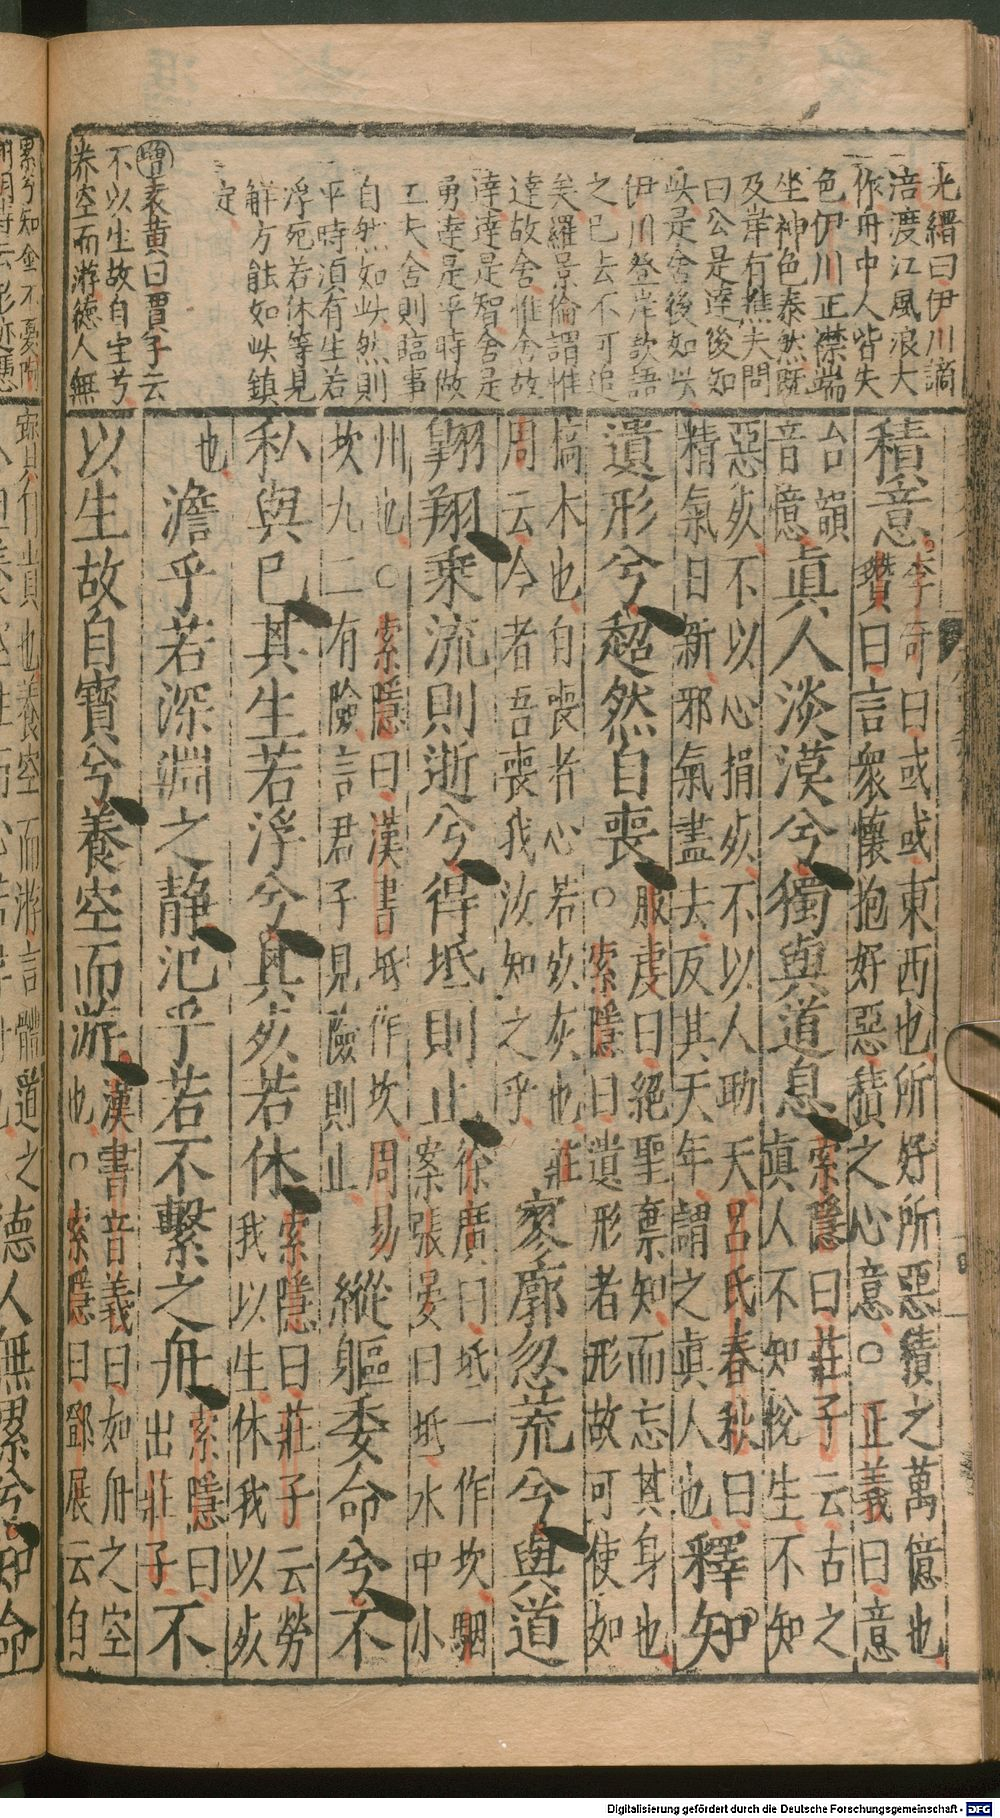 光縉曰伊川謫
涪渡江風浪大
作舟中人皆失
色伊川正襟端
坐神色泰然既
及岸有樵夫問
曰公是達後如
此是舍後如此
伊川登岸欲語
之已去不可追
矣羅景倫謂惟
達故舍惟舍故
達達是智舍是
勇達是平時做
工夫舍則臨事
自然如此然則
平時須有生若
浮死若休等見
解方能如此鎮
定
增袁黃曰賈子云
不以生故自宝兮
养空而游德人無
積意李奇曰或或東西也所好所惡積之萬億也
瓚曰言衆懷抱好惡積之心意○正義曰意
合韻
音憶真人淡漠兮獨與道息索隱曰莊子云古之
真人不知悅生不知
惡死不以心捐死不以人助天呂氏春秋曰
精氣日新邪氣盡去反其天年謂之真人也釋知
遺形兮超然自喪服虔曰絕聖棄知而忘其身也
○索隱曰遺形者形故可使如
槁木也自喪者心若死灰也莊
周云今者吾喪我汝知之乎寥廓忽荒兮與道
翱翔乘流則逝兮得坻則止徐廣曰坻一作坎駰
案張晏曰坻水中小
州也○索隱曰漢書坻作坎周易
坎九二有險言君子見險則止縱軀委命兮不
私與已其生若浮兮其死若休索隱曰莊子云勞
我以生休我以死
也澹乎若深淵之靜氾乎若不繫之舟索隱曰
出莊子不
以生故自寶兮養空而游漢書音義曰如舟之空
也○索隱曰鄧展云自
累兮知命不憂
寶其作止貞也養空而游言體道之
德人無累兮知命
Digitalisierung gefördert durch die Deutsche Forschungsgemeinschaft - DFG